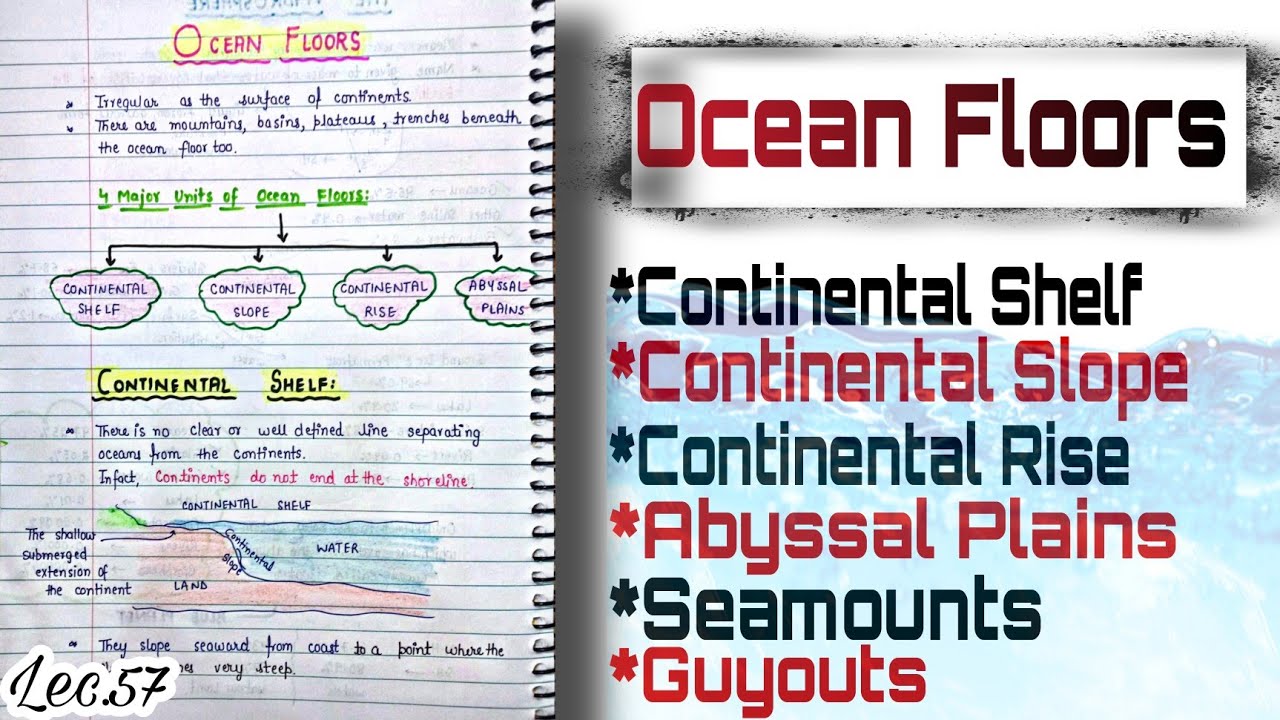 OCEAN FLOORS
Irregular as the surface of continents.
There are mountains, basins, plateaus, trenches beneath
the ocean floor too.
4 Major Units of Ocean Floors:
CONTINENTAL
SHELF
CONTINENTAL
SLOPE
CONTINENTAL
RISE
ABYSSAL
PLAINS
CONTINENTAL SHELF:
There is no clear or well defined line separating
oceans from the continents.
Infact, Continents do not end at the shoreline.
CONTINENTAL SHELF
The shallow
submerged
extension of
the continent
Continental
Slope
WATER
LAND
They slope seaward from coast to a point where the
very steep.
Lec.57
Ocean Floors
*Continental Shelf
*Continental Slope
*Continental Rise
*Abyssal Plains
*Seamounts
*Guyouts